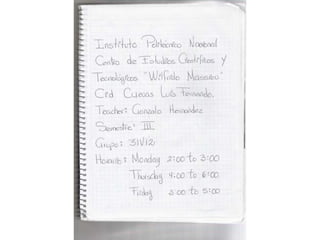 Instituto Politécnico Nacional
Centro de Estudios Científicos y
Tecnológicos "Wilfrido Massieu"
Crd Cuevas Luis Fernando.
Teacher: Gonzalo Hernandez
Semestre: III
Grupo: 3IV12
Horario: Monday 2:00 to 3:00
Thursday 4:00 to 6:00
Friday 3:00 to 5:00